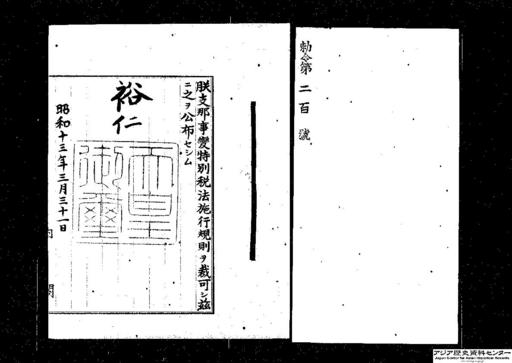 勅令第二百號
朕支那事變特別税法施行規則ヲ裁可シ茲
ニ之ヲ公布セシム
裕仁
天皇御璽
昭和十三年三月三十一日
アジア歴史資料センター
Japan Center for Asian Historical Records